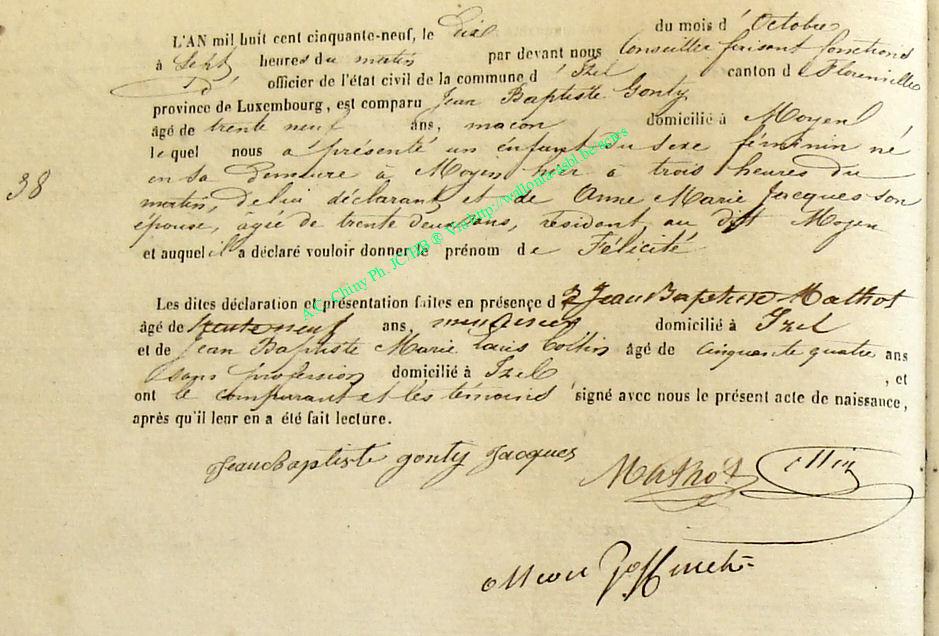 L'AN mil huit cent cinquante-neuf, le Dix du mois d'Octobre
à Sept heures du matin par devant nous Conseiller faisant fonctions
D' officier de l'état civil de la commune d'Izel canton de Florenville
province de Luxembourg, est comparu Jean Baptiste Gonty
âgé de trente neuf ans, maçon domicilié à Moyen
lequel nous a présenté un enfant du sexe féminin né
en sa demeure à Moyen hier à trois heures du
matin, de lui déclarant et de Anne Marie Jacques son
épouse, âgée de trente deux ans, résidant au dit Moyen
et auquel il a déclaré vouloir donner le prénom de Félicité
38
Les dites déclaration et présentation faites en présence de Jean Baptiste Mathot
âgé de trente neuf ans, menuisier domicilié à Izel
et de Jean Baptiste Marie Louis Collin âgé de cinquante quatre ans
sans profession domicilié à Izel , et
ont le comparant et les témoins signé avec nous le présent acte de naissance,
après qu'il leur en a été fait lecture.
Jean Baptiste gonty Jacques
Mathot Collin
A.C. Chiny Ph. JC 123 © Via http://wallonia.asbl.be/actes